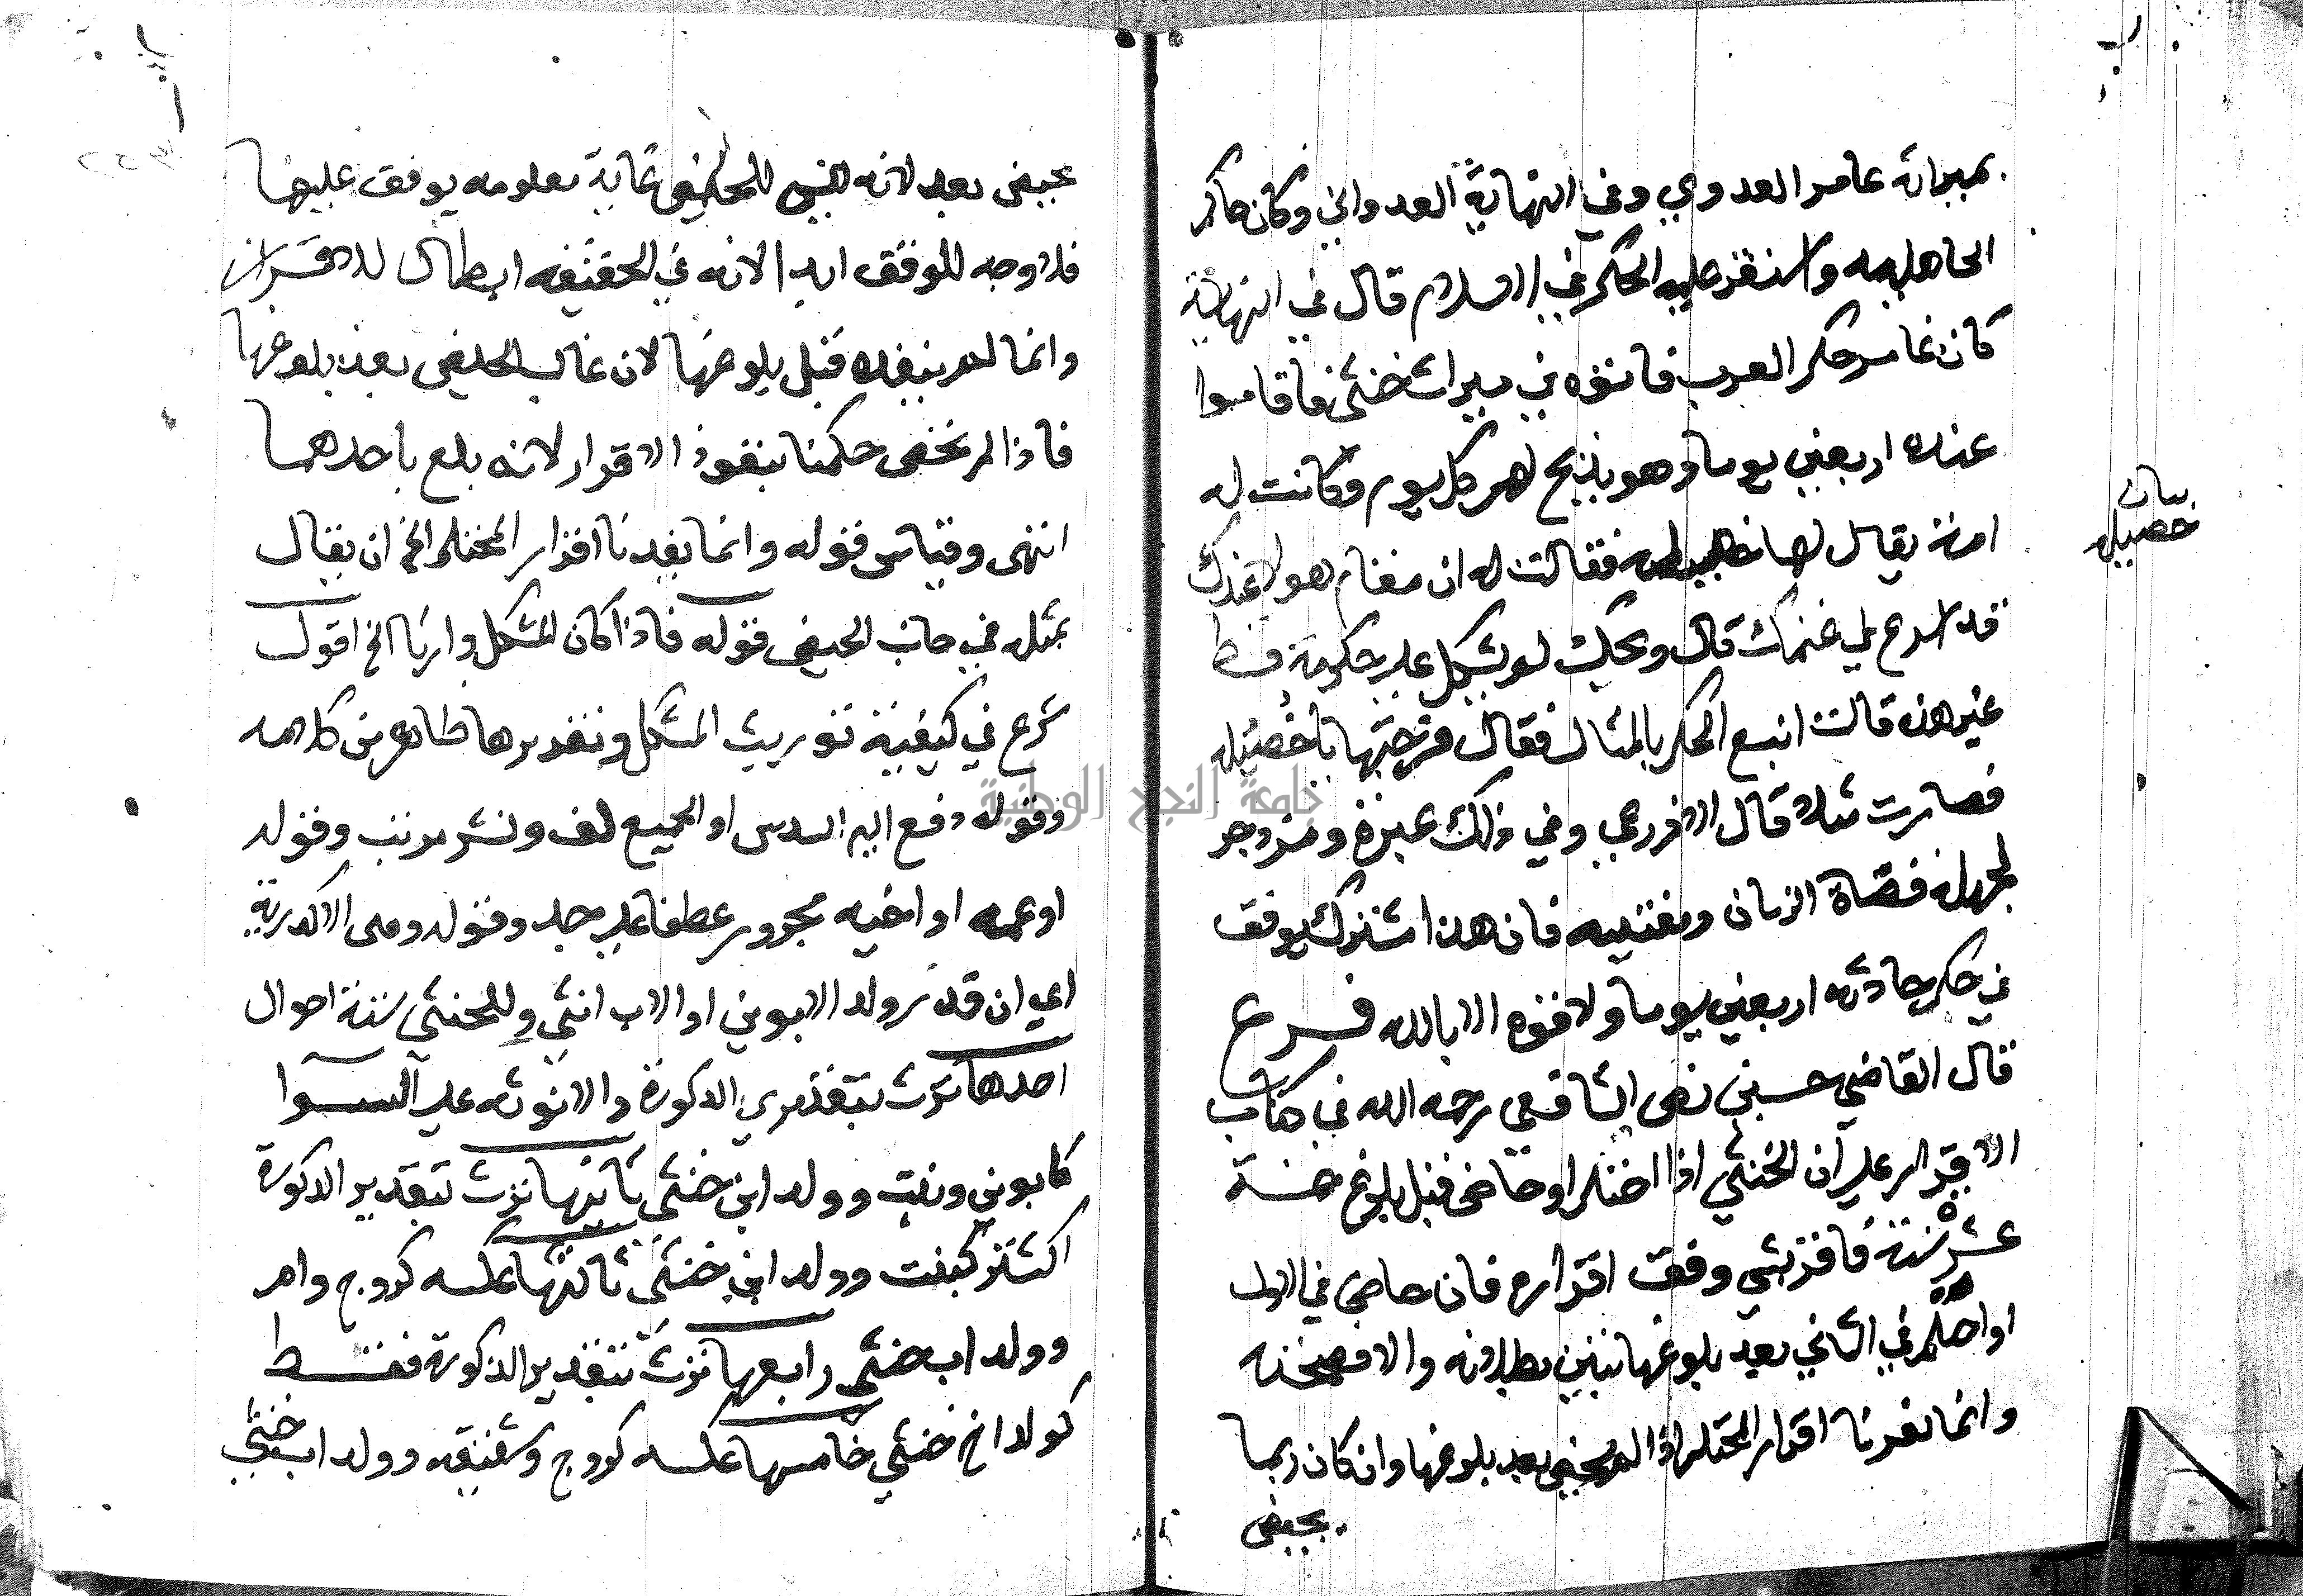 بميراثه عامر العدوي وفي النهاية العدواني وكان حاكم
الجاهلية واستقر عليه الحكم في الاسلام قال في النهاية
كان عامر حكم العرب فاتوه في ميراث خنثى فاقاموا
عنده اربعين يوما وهو يذبح لهم كل يوم وكانت له
امة يقال لها فقالت له ان مقام هولا عندك
قد اسرع في غنمك قال ويحك لم يشكل علي حكومة قط
غير هذه قالت اتبع الحكم بالمثال فقال فرجتها يا خصيله
بيان
خصيله
فصارت مثلا قال الاذرعي وفي ذلك عبرة ومزدجر
لجهلة قضاة الزمان ومفتييه فان هذا مشرك يوقف
في حكم حادثة اربعين يوما ولا قوه الا بالله فرع
قال القاضي حسين نص الشافعي رحمه الله في كتاب
الاقرار على ان الخنثي اذا احتلم او حاض قبل بلوغ خمسة
عشر سنة فاقر بشي وقف اقراره فان حاض في الاول
او احتلم في الثاني بعد بلوغها تبين بطلانه والا فصحته
وانما نفذنا اقرار المحتلم اذا لم يحض بعد بلوغها وان كان ربما
يحيض
يحيض بعد لانه ليس للحيض غاية معلومه يوقف عليها
فلا وجه للوقف ابدا لانه في الحقيقه ابطال للاقرار
وانما لم ننفذه قبل بلوغها لان غالب الحيض بعد بلوغها
فاذا لم تحض حكمنا بنفوذ الاقرار لانه بلغ باحدهما
انتهى وقياس قوله وانما نفذنا اقرار المحتلم الخ ان يقال
بمثله في جانب الحيض قوله فاذا كان المشكل وارثا الخ اقول
شرع في كيفية توريث المشكل وتقديرها ظاهر من كلامه
وقوله دفع اليه السدس او الجميع لف ونشر مرتب وقوله
او عمه او اخيه مجرور عطفا على جد وقوله ومن الاكدرية
اي ان قدر ولد الابوين او الاب انثى وللخنثي ستة احوال
احدها يرث بتقديري الذكورة والانوثه على السوا
كابوين وبنت وولد ابن خنثى ثانيها يرث بتقدير الذكورة
اكثر كبنت وولد ابن خنثى ثالثها عكسه كزوج وام
وولد اب خنثى رابعها يرث بتقدير الذكورة فقط
كولد اخ خنثى خامسها عكسه كزوج وشقيقه وولد اب خنثي
جامعة النجاح الوطنية